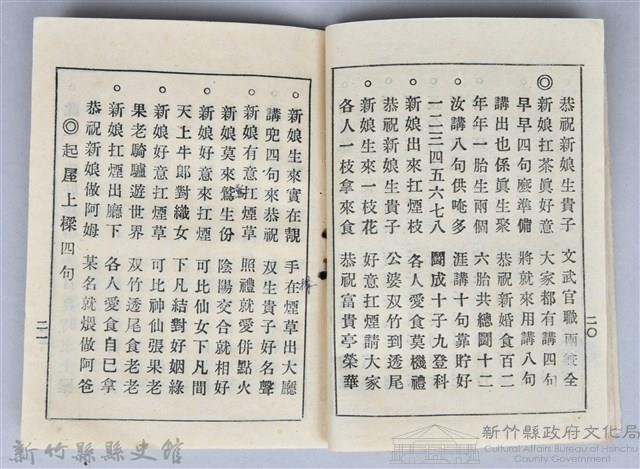 恭祝新娘生貴子 文武官職兩雙全
◎新娘扛茶眞好意 大家都有講四句
早早四句廳準備 將就來用講八句
講出也係眞生聚 恭祝新婚食百二
年年一胎生兩個 六胎共總鬪十二
汝講八句供唵多 涯講十句靠貯好
一二三四五六七八 鬪成十子九登科
○新娘出來扛煙枝 各人愛食莫機禮
恭祝新娘生貴子 公婆双竹到透尾
○新娘生來一枝花 好意扛煙請大家
各人一枝拿來食 恭祝富貴亭榮華
二〇
○新娘生來實在靚 手在煙草出大廳
講兜四句來恭祝 双生貴子好名聲
○新娘有意扛煙草 照禮就愛併點火
新娘莫來鶩生份 陰陽交合就相好
○新娘好意來扛煙 可比仙女下凡間
天上牛郎對織女 下凡結對好姻緣
○新娘好意扛煙草 可比神仙張果老
果老騎驢遊世界 双竹透尾食老老
○新娘扛煙出廳下 各人愛食自己拿
恭祝新娘做阿姆 某名就煨做阿爸
◎起屋上樑四句
二一
新竹縣縣史館
新竹縣政府文化局
Cultural Affairs Bureau of Hsinchu
County Government